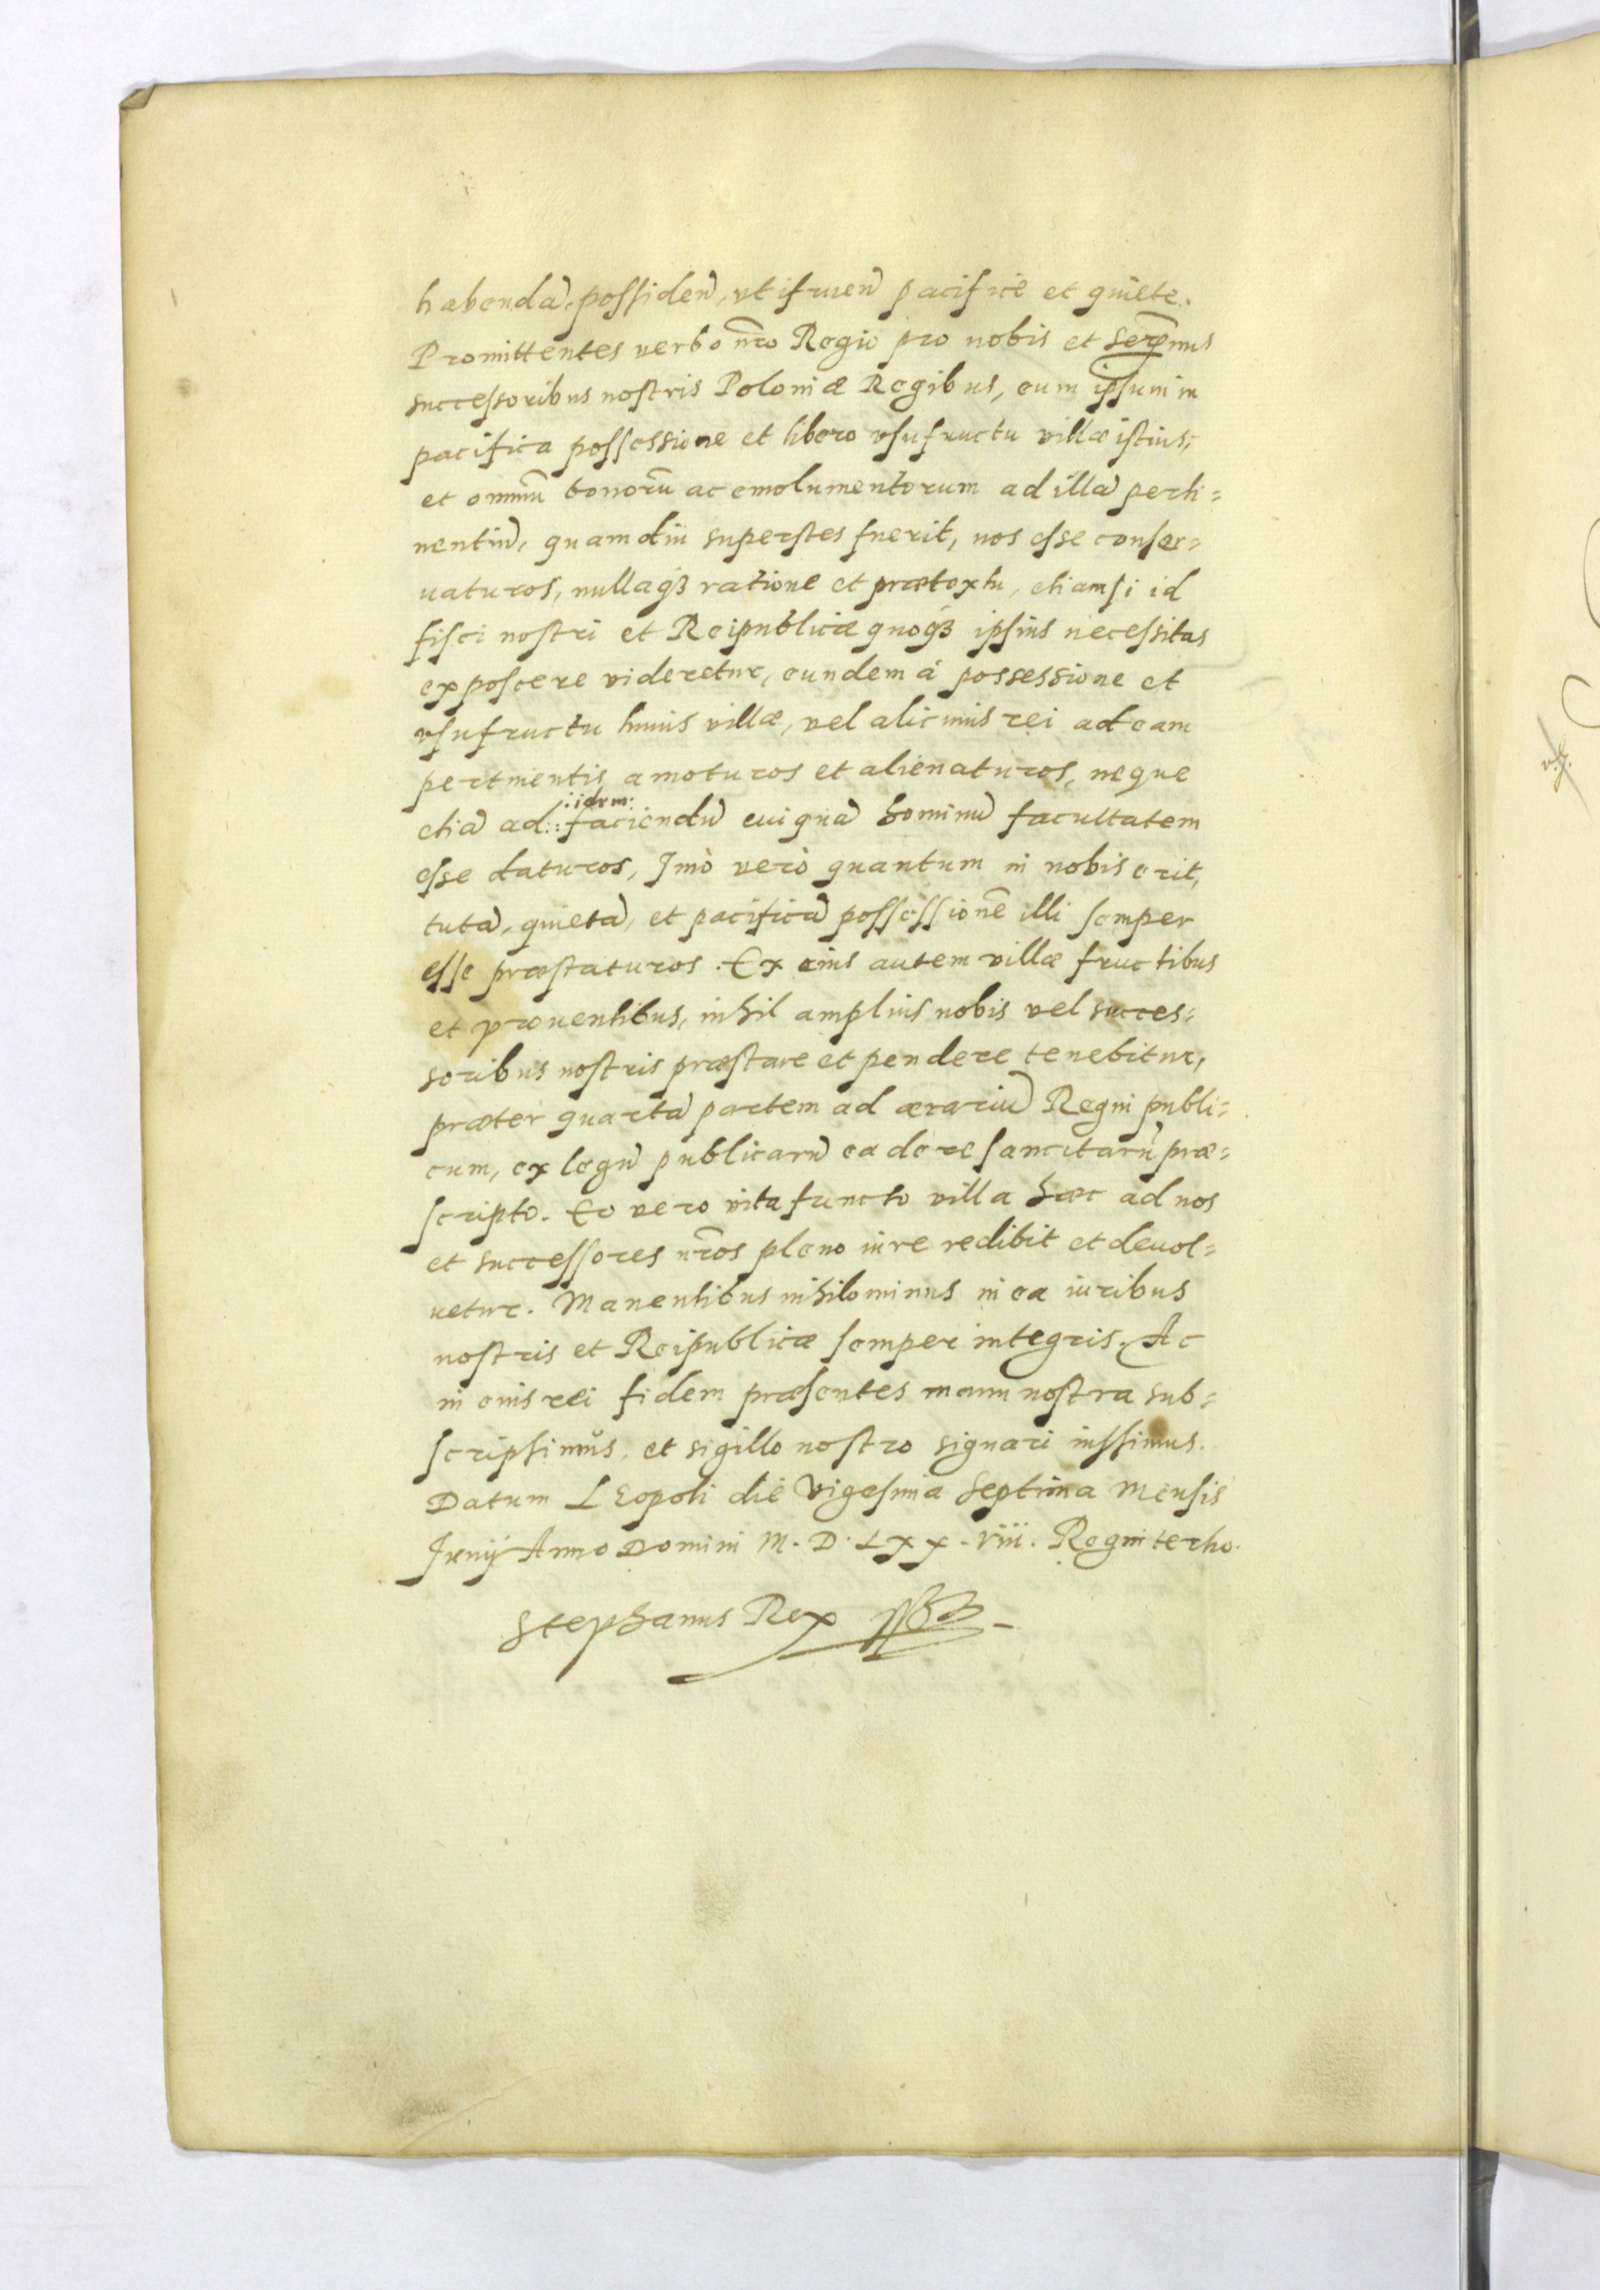 habendã, possideñ, vtifrueñ pacificè et quietè.
Promittentes verbo nr̃o Regio pro nobis et Serẽmis
successoribus nostris Poloniæ Regibus, eum ipsum in
pacifica possessione et libero vsufructu villæ istius,
et omniũ bonorũ ac emolumentorum ad illã perti=
nentiũ, quamdiu superstes fuerit, nos esse conser=
uaturos, nullaqꝫ ratione et prætextu, etiamsi id
fisci nostri et Reipublicæ quoqꝫ ipsius necessitas
exposcere videretur, eundem à possessione et
vsufructu huius villæ, vel alicuius rei ad eam
pertinentis, amoturos et alienaturos, neque
:idem:
etiã ad :: faciendũ cuiquã hominũ facultatem
esse daturos, Imò verò quantum in nobis erit,
tutã, quietã, et pacificã possessionẽ illi semper
esse præstaturos. Ex eius autem villæ fructibus
et prouentibus, nihil amplius nobis vel succes=
soribus nostris præstare et pendere tenebitur,
præter quartã partem ad ærariũ Regni publi=
cum, ex legũ publicarũ ea de re sancitarũ præ=
scripto. Eo vero vita functo villa hæc ad nos
et successores nr̃os pleno iure redibit et deuol=
uetur. Manentibus nihilominus in ea iuribus
nostris et Reipublicæ semper integris. Ac
in cuius rei fidem præsentes manu nostra sub=
scripsimus, et sigillo nostro signari iussimus.
Datum Leopoli die Vigesima Septima Mensis
Iunij Anno Domini M. D. LXX. Viii. Regni tertio.
Stephanus Rex